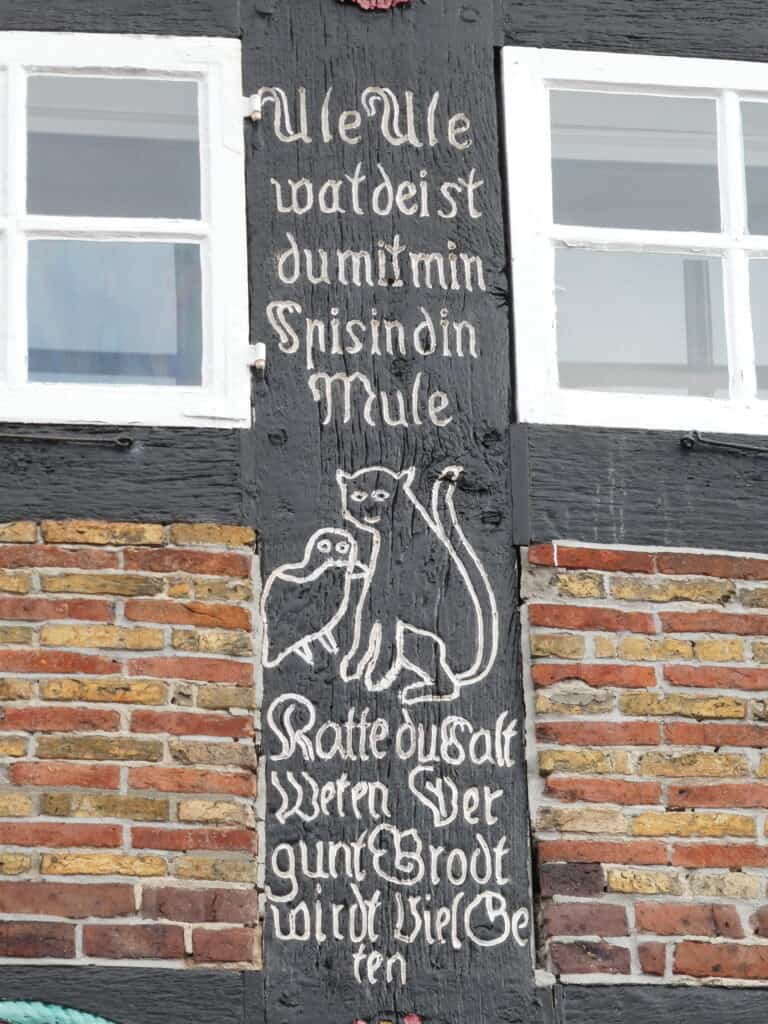 Ule Ule
wat deist
du mit min
Spis in din
Mule
Katte du salt
Weten Ver
gunt Brodt
wirdt Viel Ge
ten